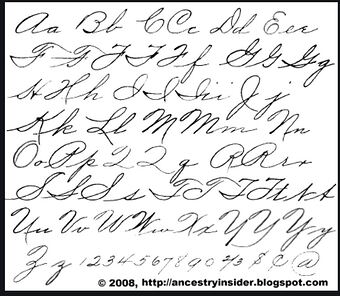 Aa Bb C Cc Dd E e e
F F F F F f G G G g
H H h I I I i i J j
K k L l M M m m N n
O o P p 2 2 q R R r r
S S S s T T T T t t t
U u V v W W w X x Y Y Y y
Z z 1234567890 2/3 $ ¢ @
© 2008, http://ancestryinsider.blogspot.com